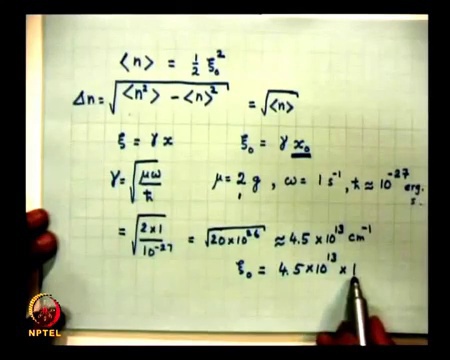 ⟨n⟩ = 1/2 ξ₀²
Δn = √(⟨n²⟩ − ⟨n⟩²) = √⟨n⟩
ξ = γ x    ξ₀ = γ x₀
γ = √(μω/ħ)    μ = 2 g, ω = 1 s⁻¹, ħ ≈ 10⁻²⁷ erg. s.
= √(2×1/10⁻²⁷) = √(20×10²⁶) ≈ 4.5×10¹³ cm⁻¹
ξ₀ = 4.5×10¹³ × 1
NPTEL